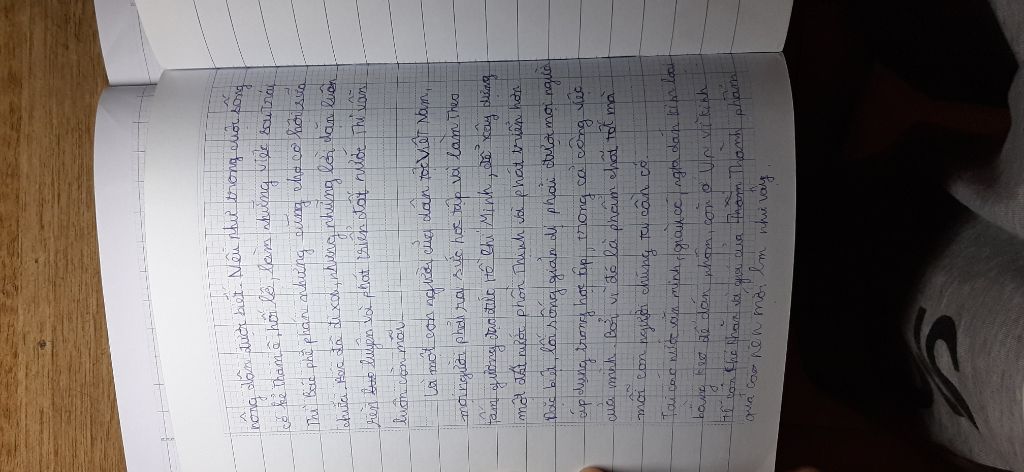 nông dân dưới bet. Nếu như trong cuộc sống
có kẻ tham ô, hối lộ, làm những việc sai trái
thì Bác phê phán nhưng cũng cho cơ hội sửa
chữa Bác đã đi xa, nhưng những lời dăn luôn
rèn luyện và phát triển đất nước thì vẫn
luôn còn mãi.
Là một con người của dân tộc Việt Nam,
mọi người phải ra sức học tập và làm theo
tấm gương đạo đức Hồ Chí Minh, để xây dựng
một đất nước phồn thịnh và phát triển hơn
Đặc biệt lối sống giản dị phải được mọi người
áp dụng trong học tập, trong cả công việc
của mình. Bởi vì đó là phẩm chất tốt mà
mỗi con người chúng ta cần có.
Tại các nước văn minh, giàu có, người dân kim loại
bằng để dán phẩm, còn ở VN vì kinh
tế còn khó khăn và giá của thẩm phẩm
quá cao nên mới làm như vậy